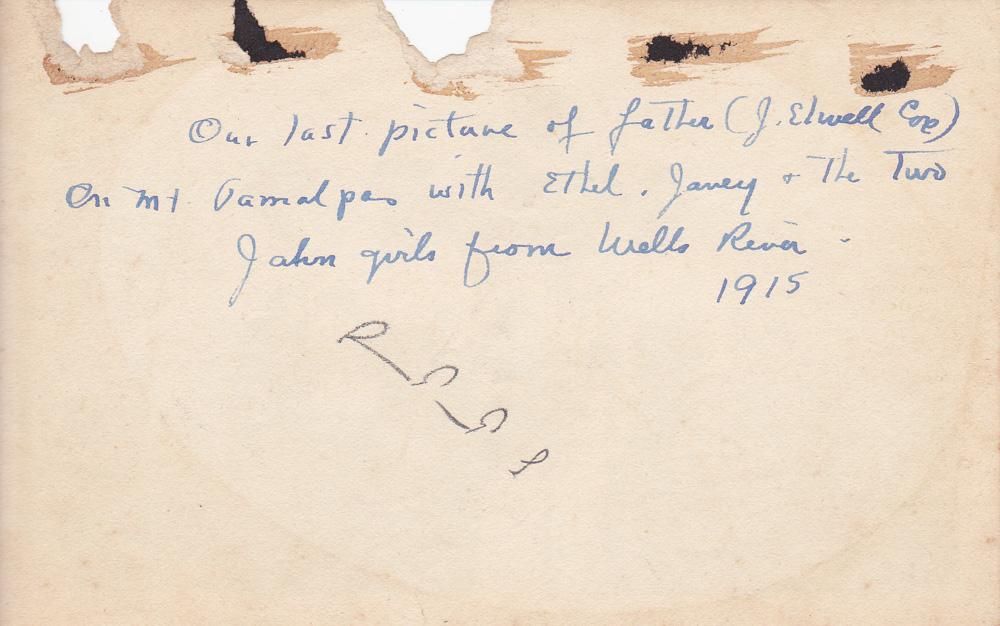 Our last picture of father (J. Elwell Cox)
On Mt Tamalpas with Ethel, Janey + The Two
Jahn girls from Wells River -
1915